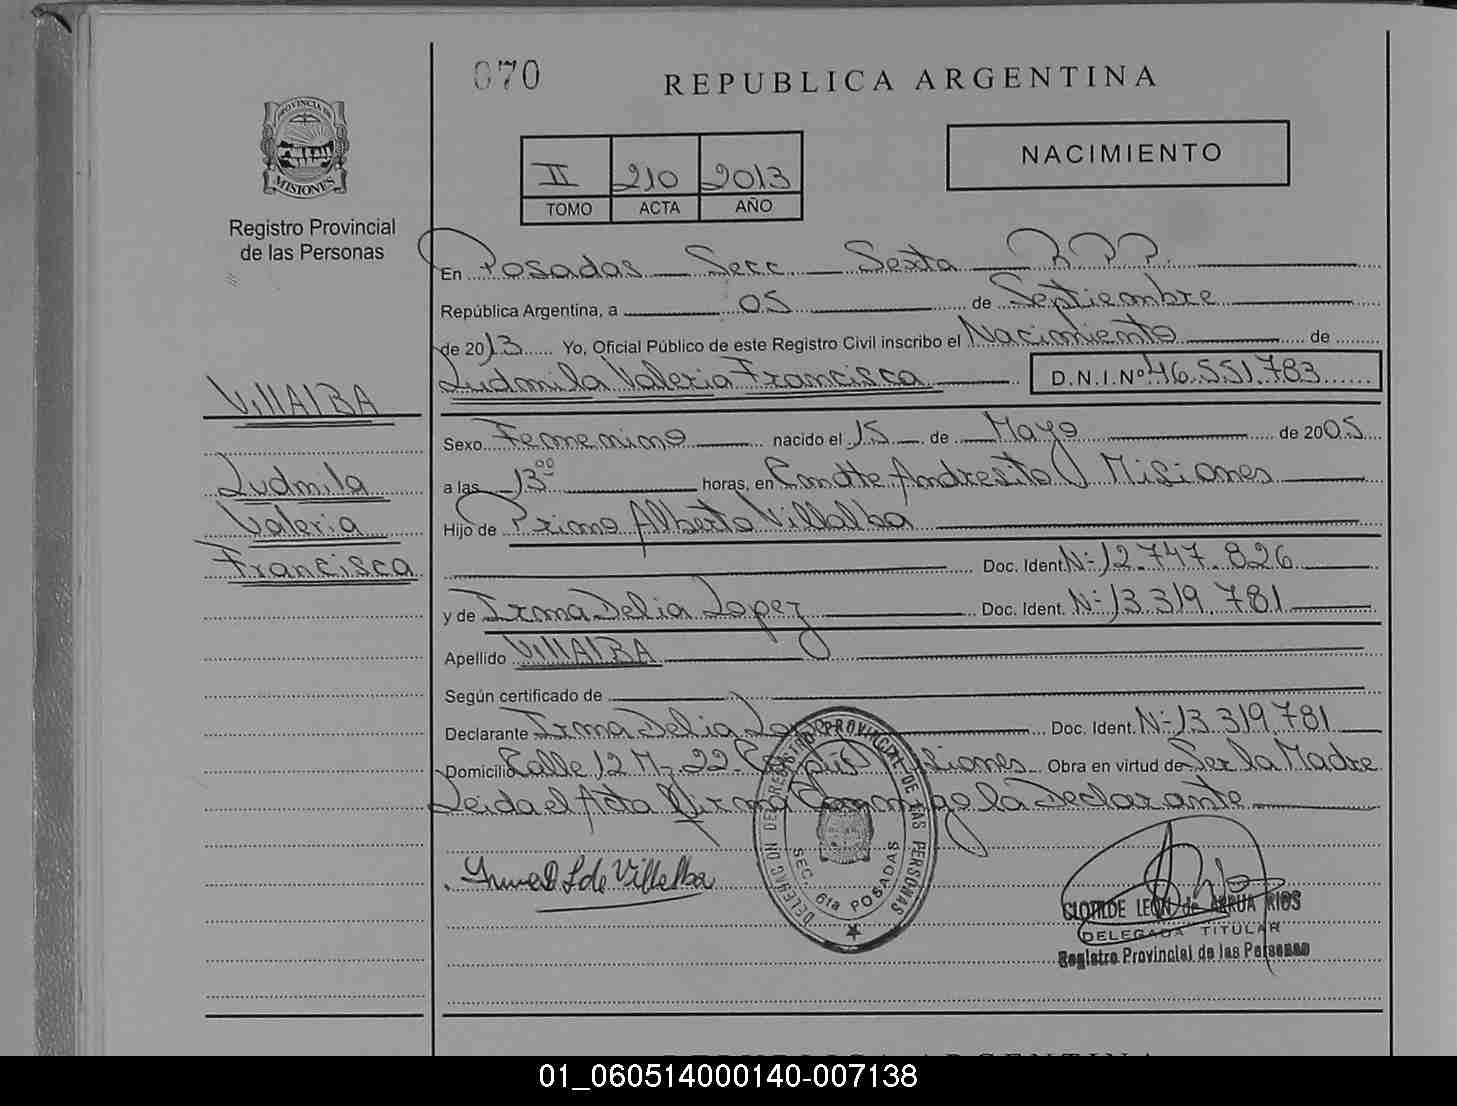 070
REPUBLICA ARGENTINA
PROVINCIA DE
MISIONES
Registro Provincial
de las Personas
II 210 2013
TOMO ACTA AÑO
NACIMIENTO
En Posadas Secc. Sexta R.P.P.
República Argentina, a 05 de Septiembre
de 2013 Yo, Oficial Público de este Registro Civil inscribo el Nacimiento de
Ludmila Valeria Francisca D.N.I.Nº 46.551.783
VillAlBA
Sexo Femenino nacido el 15 de Mayo de 2005
Ludmila
a las 13 00 horas, en Cmdte. Andresito Misiones
Valeria
Hijo de Primo Alberto Villalba
Francisca
Doc. Ident. Nº 12.747.826
y de Irma Delia Lopez Doc. Ident. Nº 13.319.781
Apellido VillAlBA
Según certificado de
Declarante Irma Delia Doc. Ident. Nº 13.319.781
Domicilio Calle 12 M- 22- Obra en virtud de Ser la Madre
Leida el Acta Firma Conmigo la Declarante
DELEGACION DEL REGISTRO PROVINCIAL DE LAS PERSONAS
SEC. 6ta POSADAS
L de Villalba
CLOTILDE LEON de ARRUA RIOS
DELEGADA TITULAR
Registro Provincial de las Personas
01_060514000140-007138